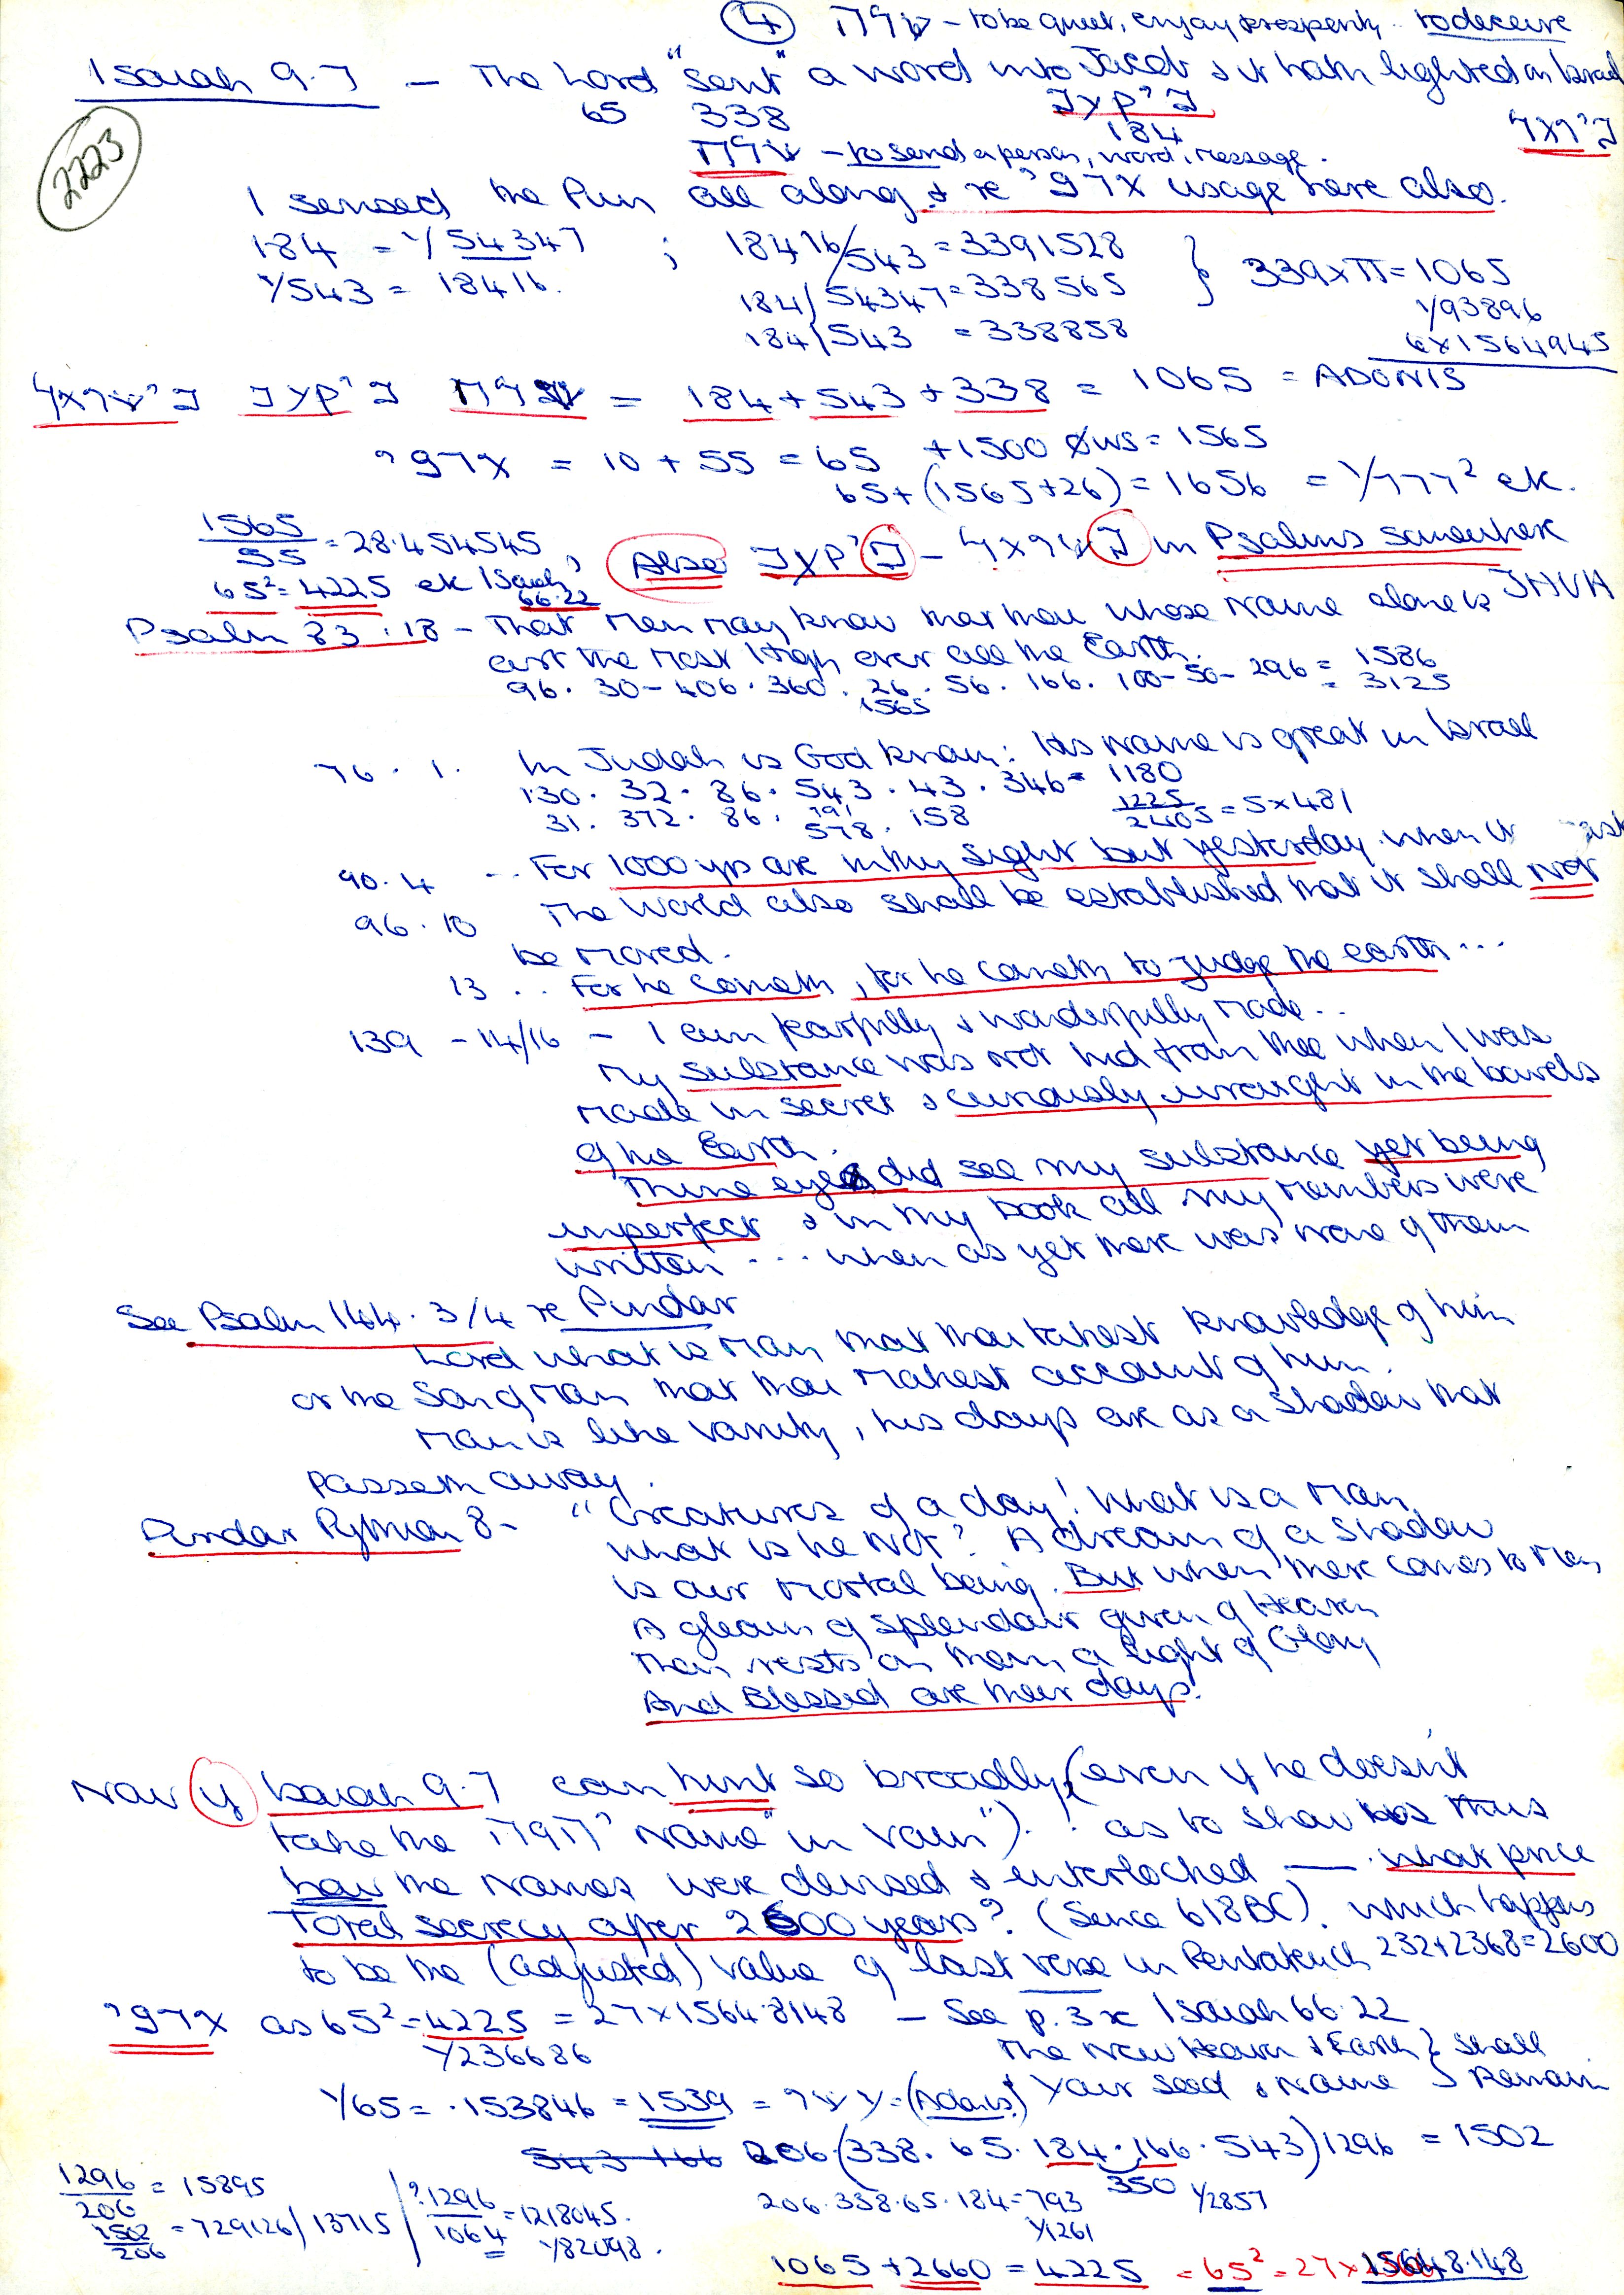 ④ – to be quiet, enjoy prosperity . to deceive
Isaiah 9.7 – The Lord "sent" a word into Jacob & it hath lighted on Israel
65 338
184
2223
– to send a person, word, message.
I sensed the Pun all along & re usage here also.
184 = 1/54347 ; 18416/543 = 3391528 } 339 x π = 1065
1/543 = 18416. 184/54347 = 338565 1/93896
184/543 = 338858 6 x 1564945
= 184 + 543 + 338 = 1065 = ADONIS
= 10 + 55 = 65 + 1500 = 1565
65 + (1565 + 26) = 1656 = 1/777² etc.
1565/55 = 28.454545, Also – in Psalms somewhere
65² = 4225 etc Isaiah 66.22
Psalm 83.18 – That Men may know that thou whose Name alone is JHVH
art the Most High over all the Earth.
96 . 30 – 406 . 360 . 26 . 56 . 166 . 100 – 50 – 296 = 1586
1565 = 3125
76 . 1 . In Judah is God known: His Name is great in Israel
130 . 32 . 86 . 543 . 43 . 346 = 1180
31 . 372 . 86 . 791 578 . 158 1225 2405 = 5 x 481
90.4 .. For 1000 yrs are in thy sight but yesterday when it
96.10 The World also shall be established that it shall not
be moved.
13 .. For he cometh, for he cometh to judge the earth ...
139 – 14/16 – I am fearfully & wonderfully made ..
My substance was not hid from thee when I was
made in secret & curiously wrought in the bowels
of the Earth.
Thine eyes did see my substance yet being
imperfect & in my book all my members were
written ... when as yet there was none of them
See Psalm 144. 3/4 re Pindar
Lord what is Man that thou takest knowledge of him
or the Son of Man that thou makest account of him.
Man is like vanity, his days are as a shadow that
passeth away.
Pindar Pythian 8 – "Creatures of a day! What is a Man,
what is he not? A dream of a shadow
is our mortal being. But when there comes to Men
A gleam of splendour given of Heaven
Then rests on them a light of Glory
And Blessed are their days.
Now if Isaiah 9.7 can hint so broadly (even if he doesn't
take the Name "in vain") . ! as to show thus
how the Names were devised & interlocked — what price
Total secrecy after 2600 years? (Since 618BC). which happens
to be the (adjusted) value of last verse in Pentateuch 232+2368=2600
as 65² = 4225 = 27 x 1564.8148 – See p. 3 re Isaiah 66.22
1/236686 The New Heaven & Earth } shall
1/65 = .153846 = 1539 = (Adonis!) & Your Seed & Name } Remain
206 (338 . 65 . 184 . 166 . 543) 1296 = 1502
350 1/2857
206 . 338 . 65 . 184 = 793
1/1261
1296/206 = 15895 ? 1296/1064 = 1218045.
1502/206 = 729126/13715 1/82098.
1065 + 2660 = 4225 = 65² = 27 x 1564 8.148